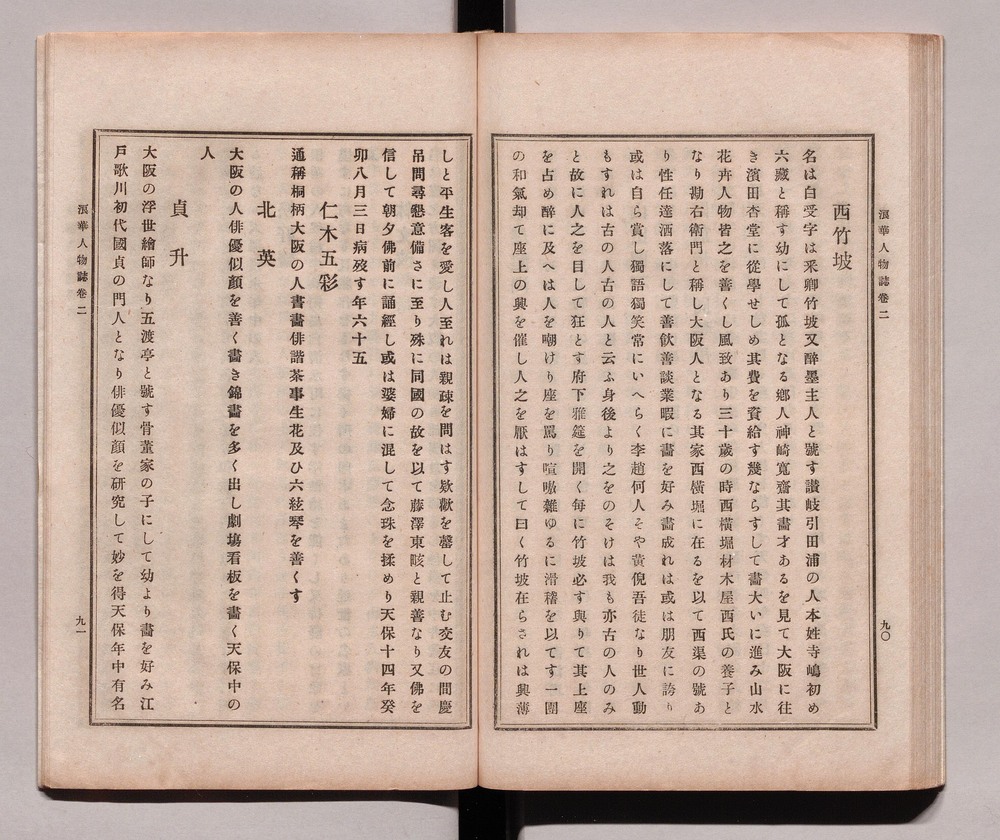 浪華人物誌卷二
九〇
西竹坡
名は白受字は釆卿竹坡又醉墨主人と號す讃岐引田浦の人本姓寺嶋初め
六藏と稱す幼にして孤となる鄉人神崎寬齋其書才あるを見て大阪に往
き濱田杏堂に從學せしめ其費を資給す幾ならすして書大いに進み山水
花卉人物皆之を善くし風致あり三十歲の時西橫堀材木屋西氏の養子と
なり勘右衛門と稱し大阪人となる其家西橫堀に在るを以て西渠の號あ
り性任達洒落にして善飮善談業暇に畵を好み畵成れは或は朋友に誇り
或は自ら賞し獨語獨笑常にいへらく李趙何人そや黃倪吾徒なり世人動
もすれは古の人古の人と云ふ身後より之をのそけは我も亦古の人のみ
と故に人之を目して狂とす府下雅筵を開く每に竹坡必す與りて其上座
を占め醉に及へは人を嘲けり座を罵り喧嗷雜ゆるに滑稽を以てす一團
の和氣却て座上の興を催し人之を厭はすして曰く竹坡在らされは興薄
しと平生客を愛し人至れは親疎を問はす欵歡を罄して止む交友の間慶
吊問尋懇意備さに至り殊に同國の故を以て藤澤東畡と親善なり又佛を
信して朝夕佛前に誦經し或は婆婦に混して念珠を揉めり天保十四年癸
卯八月三日病歿す年六十五
仁木五彩
通稱桐柄大阪の人書畵俳諧茶事生花及ひ六絃琴を善くす
北英
大阪の人俳優似顏を善く畵き錦畵を多く出し劇塲看板を畵く天保中の
人
貞升
大阪の浮世繪師なり五渡亭と號す骨董家の子にして幼より畵を好み江
戶歌川初代國貞の門人となり俳優似顏を硏究して妙を得天保年中有名
浪華人物誌卷二
九一